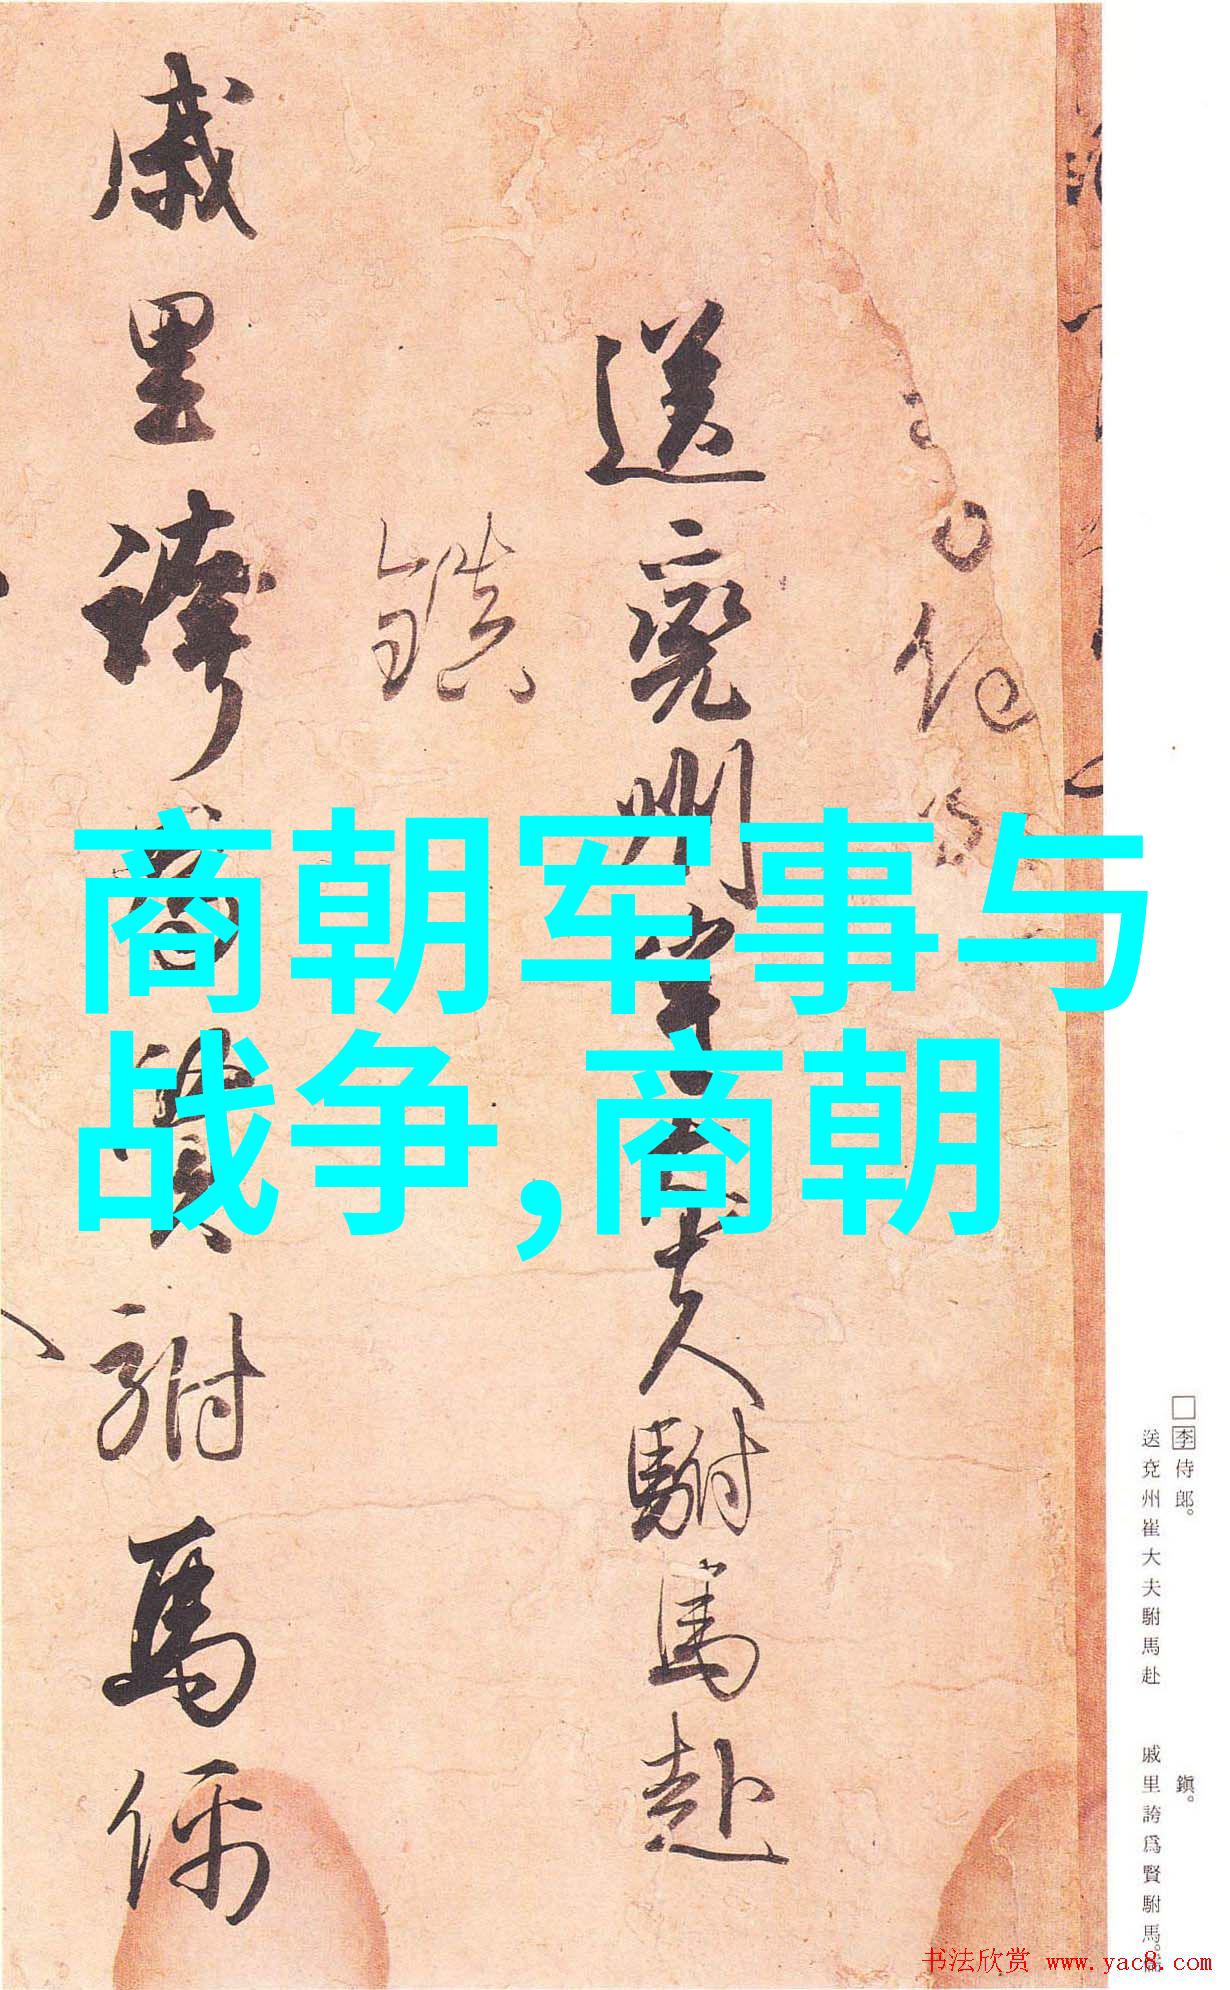 商朝军事与
战争,商朝
□李侍郎。
送兗州崔大夫駙馬赴
鎭。
戚里誇爲賢駙馬。
送兗州崔大夫駙馬赴
鎮
戚里誇為賢駙馬儒
书法欣赏 www.yac8.com